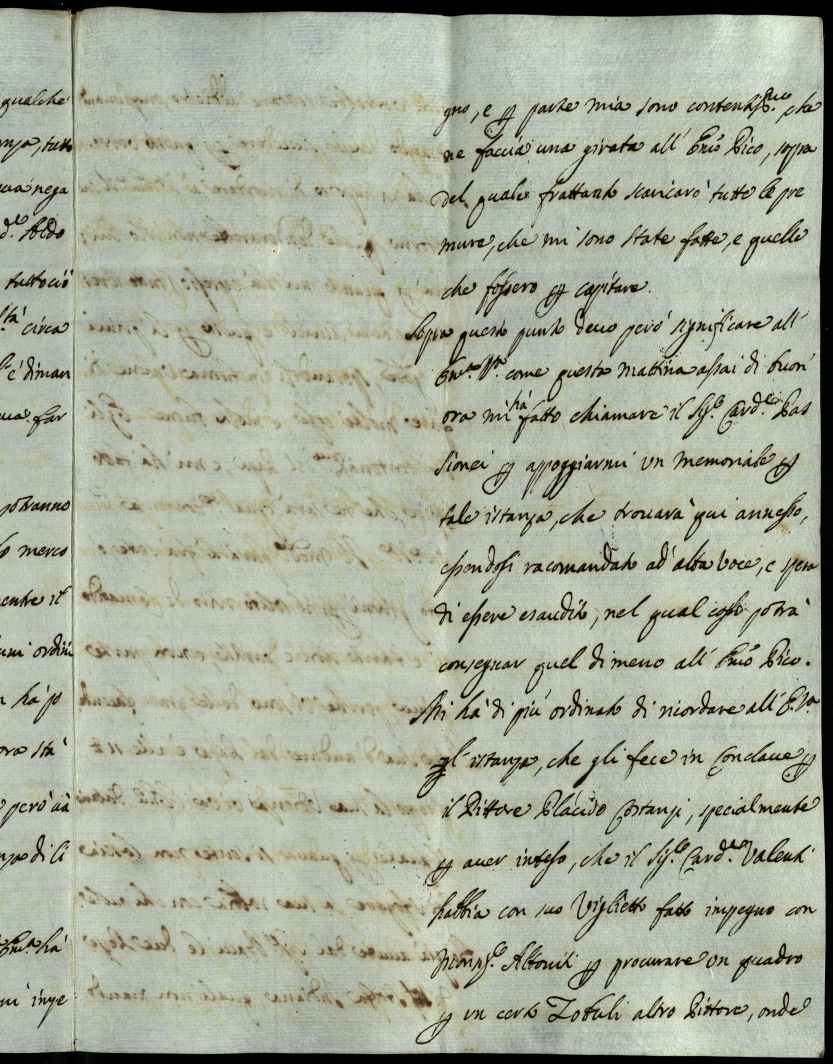 qualche
nza, tutt
ua nega
d.le Aldo
tuttociò
s.tà circa
è diman
ua far
potranno
merco
entre il
uni ordini
hà p
ora stà
però
di ci
Em.a hà
inpe
gno, e ꝑ parte mia sono contentiss.mo, che
ne faccia una girata all' Em̃o Pico, sopra
del quale frattanto scaricarò tutte le pre
mure, che mi sono state fatte, e quelle
che fossero ꝑ capitare.
Sopra questo punto devo però significare all'
Em.za V.ra come questa mattina assai di buon'
ora mi hà fatto chiamare il Sig.r Card.le Pas
sionei ꝑ appoggiarmi un memoriale ꝑ
tale istanza, che trovarà qui annesso,
essendosi racomandato ad' alta voce, e spera
di essere esaudito, nel qual caso potrà
consegnar quel di meno all' Em̃o Pico.
Mi hà di più ordinato di ricordare all' E.V.ra
l' istanza, che gli fece in Conclave ꝑ
il Pittore Placido Costanzi, specialmente
ꝑ aver inteso, che il Sig.r Card.le Valenti
habbia con suo Viglietto fatto impegno con
Monsig.r Altoviti ꝑ procurare un quadro
ꝑ un certo Zobuli altro Pittore, onde